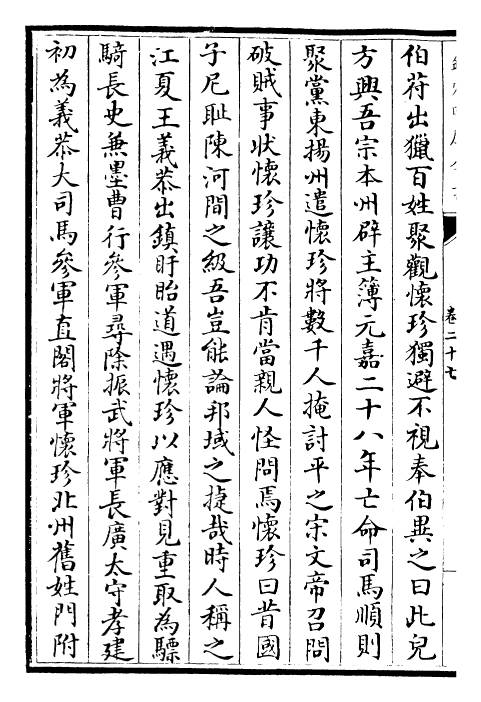 伯符出獵百姓聚觀懷珍獨避不視奉伯異之曰此兒
方興吾宗本州辟主簿元嘉二十八年亡命司馬順則
聚黨東揚州遣懷珍將數千人掩討平之宋文帝召問
破賊事狀懷珍讓功不肯當親人怪問焉懷珍曰昔國
子尼耻陳河間之級吾豈能論邦域之捷哉時人稱之
江夏王義恭出鎮盱眙道遇懷珍以應對見重取為驃
騎長史兼墨曹行參軍尋除振武將軍長廣太守孝建
初為義恭大司馬參軍直閣將軍懷珍北州舊姓門附
卷二十七